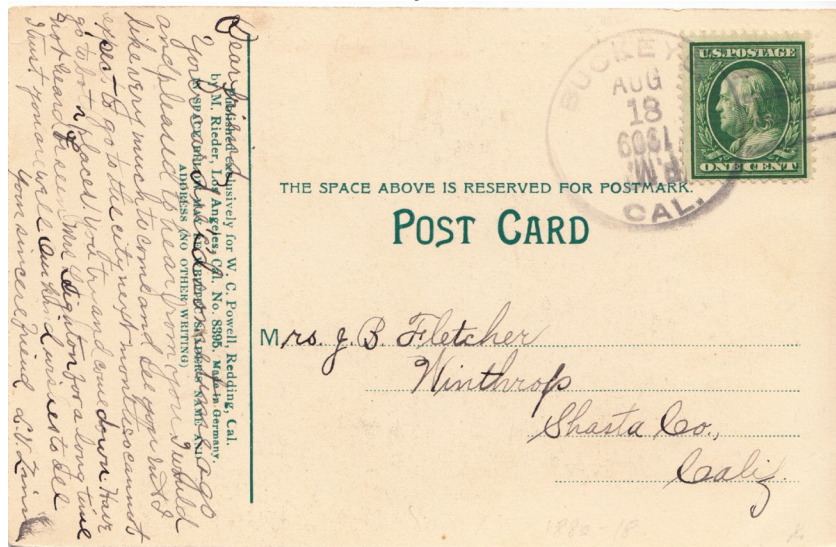 U.S. POSTAGE
ONE CENT
BUCKEY
AUG
18
1909
CAL.
THE SPACE ABOVE IS RESERVED FOR POSTMARK.
POST CARD
Mrs. J. B. Fletcher
Winthrop
Shasta Co.,
Calif.
Published exclusively for W. C. Powell, Redding, Cal.
by M. Rieder, Los Angeles, Cal. No. 8395. Made in Germany.
SPACE BELOW MAY BE USED FOR SENDER'S NAME AND
ADDRESS (NO OTHER WRITING)
Dear Friend
Your card ago
and pleased to hear from you I would
like very much to come and see you but I
expect to go to the city next month so cannot
go to both places. You try and come down Have
not heard or seen Mrs Leighton for a long time
I trust you are well Auntie wishes to see
Your sincere friend L. V.